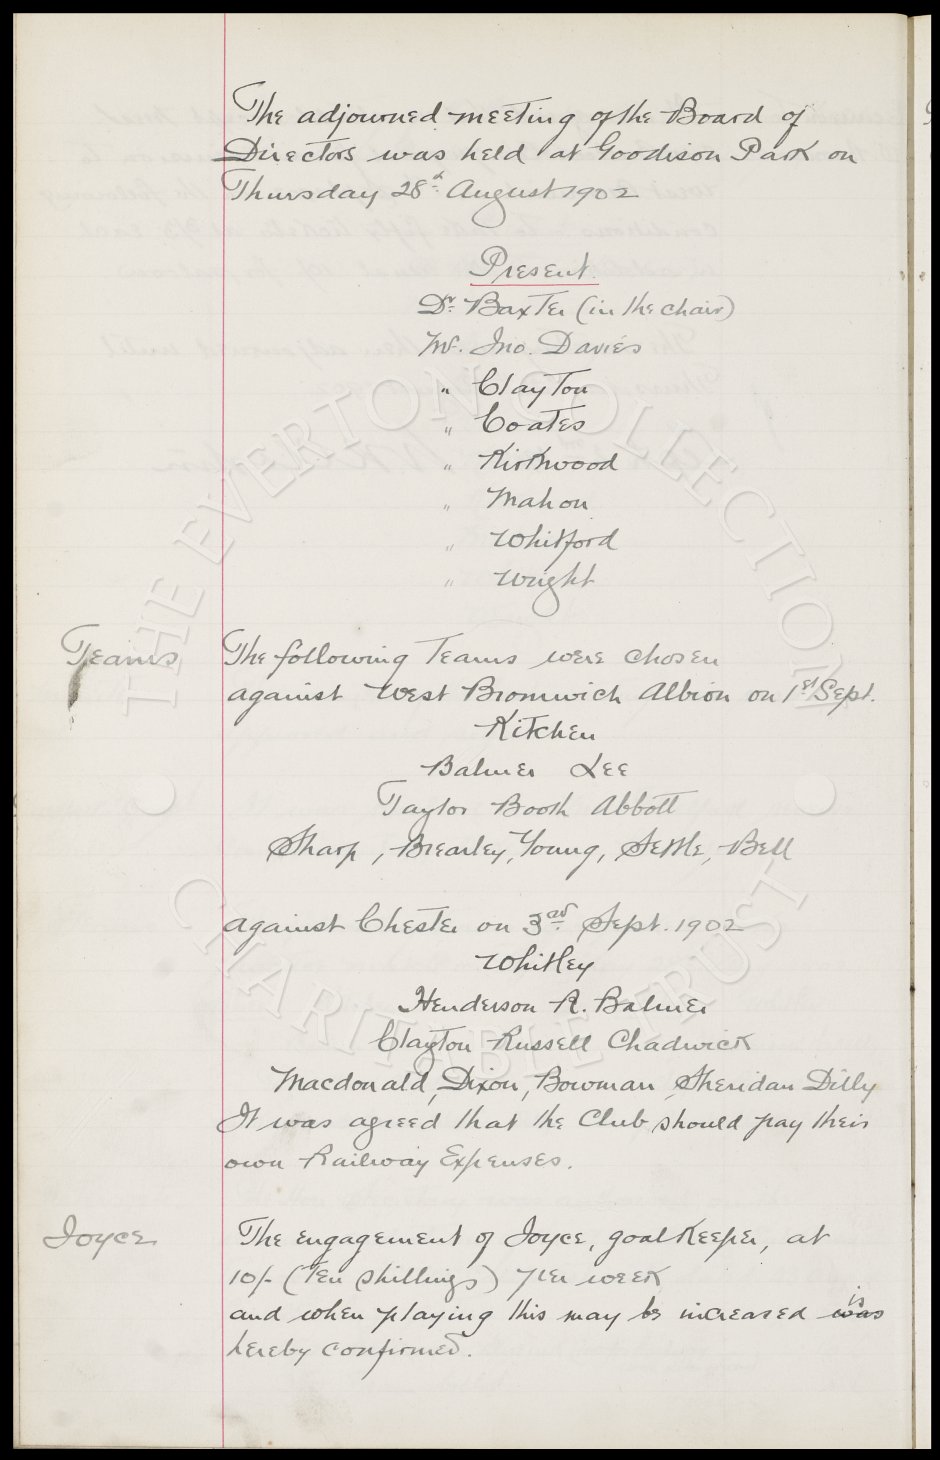 The adjourned meeting of the Board of
Directors was held at Goodison Park on
Thursday 28th August 1902
Present.
Dr. Baxter (in the chair)
Mr. Jno. Davies
" Clayton
" Coates
" Kirkwood
" Mahon
" Whitford
" Wright
Teams
The following Teams were chosen
against West Bromwich Albion on 1st Sept.
Kitchen
Balmer Lee
Taylor Booth Abbott
Sharp, Brearley, Young, Settle, Bell
against Chester on 3rd Sept. 1902
Whitley
Henderson R. Balmer
Clayton Russell Chadwick
Macdonald, Dixon, Bowman, Sheridan Dilly
It was agreed that the Club should pay their
own Railway Expenses.
Joyce
The engagement of Joyce, goalkeeper, at
10/- (Ten shillings) per week
and when playing this may be increased was is
hereby confirmed.
THE EVERTON COLLECTION
CHARITABLE TRUST